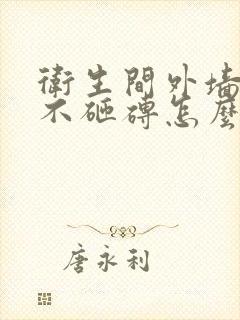 衛生間外墻
不砸磚怎麼
唐永利